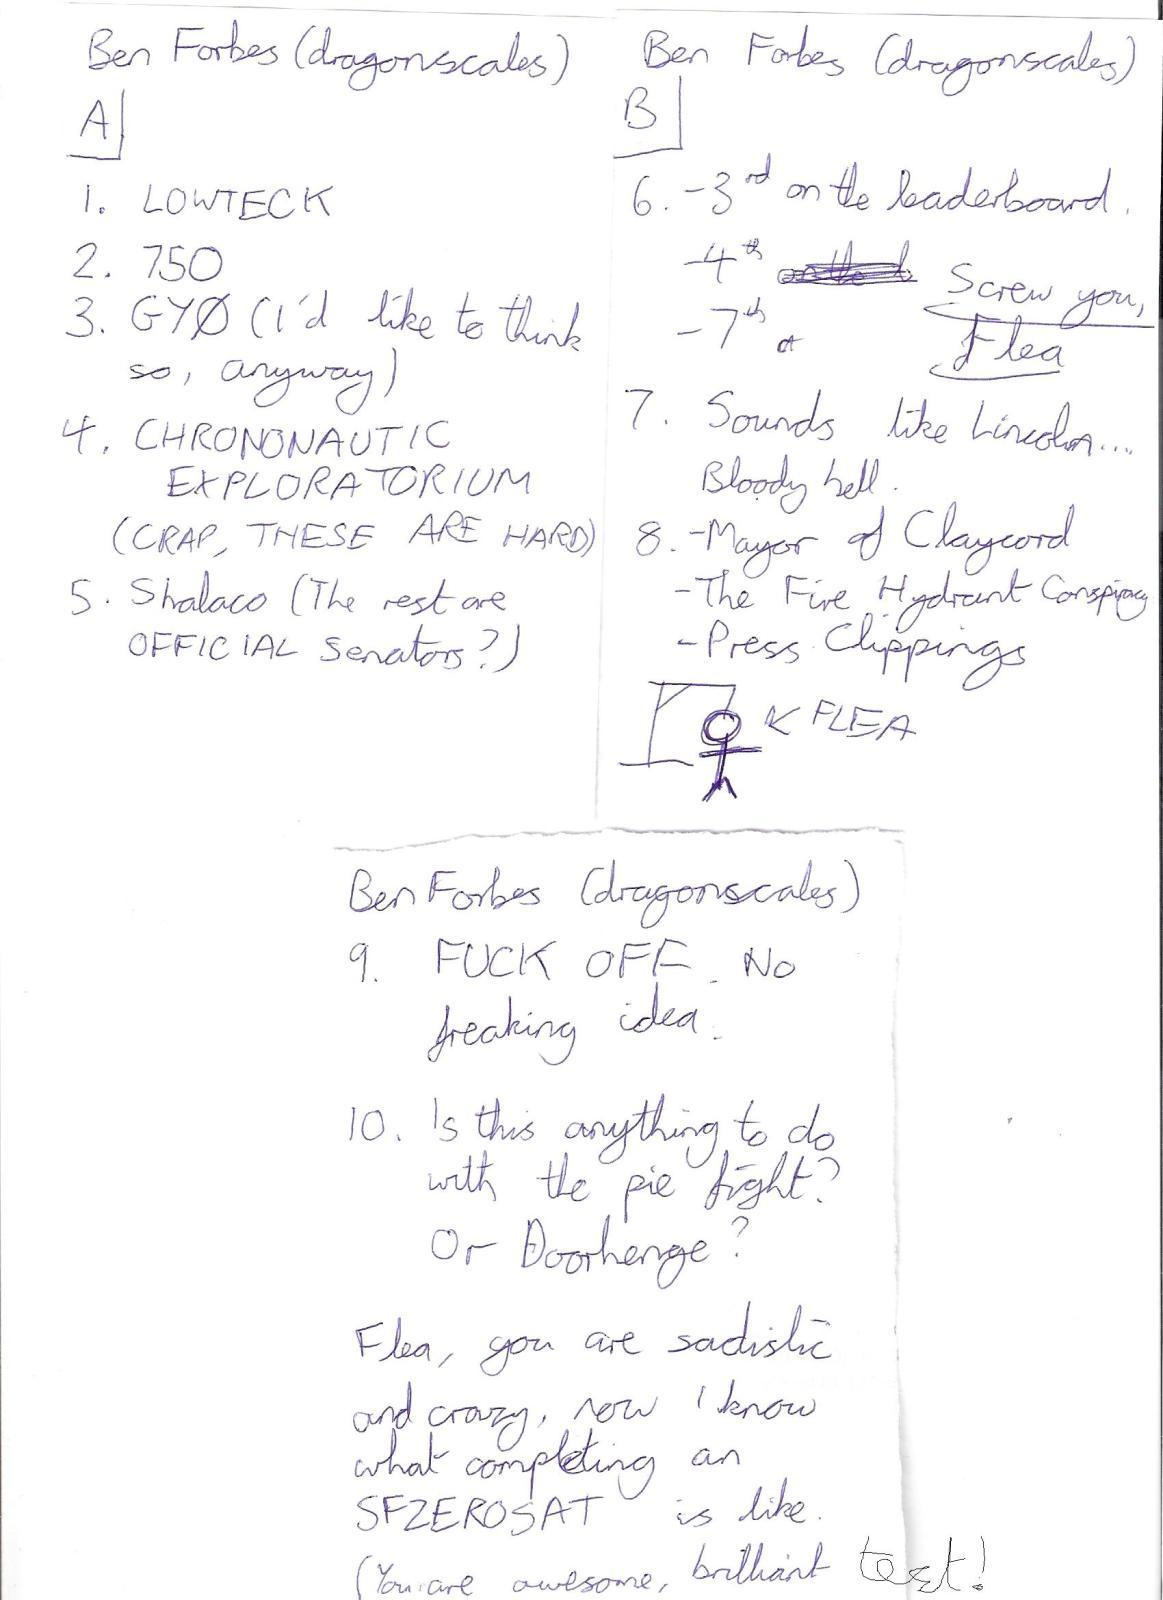 Ben Forbes (dragonscales)
A
1. LOWTECK
2. 750
3. GYØ (I'd like to think
so, anyway)
4. CHRONONAUTIC
EXPLORATORIUM
(CRAP, THESE ARE HARD)
5. Shalaco (The rest are
OFFICIAL Senators?)
Ben Forbes (dragonscales)
B
6. -3rd on the leaderboard.
-4th
-7th
Screw you,
Flea
7. Sounds like Lincoln....
Bloody hell.
8. -Mayor of Claycord
-The Fire Hydrant Conspiracy
-Press Clippings
FLEA
Ben Forbes (dragonscales)
9. FUCK OFF. No
freaking idea.
10. Is this anything to do
with the pie fight?
Or Doorhenge?
Flea, you are sadistic
and crazy, now I know
what completing an
SFZEROSAT is like.
(You are awesome, brilliant test!